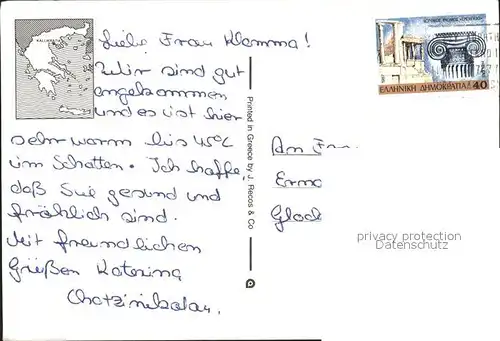 Liebe Frau Klamma!
Wir sind gut
angekommen
und es ist hier
sehr warm bis 45°C
im Schatten. Ich hoffe,
daß Sie gesund und
fröhlich sind.
Mit freundlichen
Grüßen Katerina
Chatzinikolau.
Printed in Greece by J. Recos & Co
ΕΛΛΗΝΙΚΗ ΔΗΜΟΚΡΑΤΙΑ 40
An Frau
Erna
Glad
privacy protection
Datenschutz